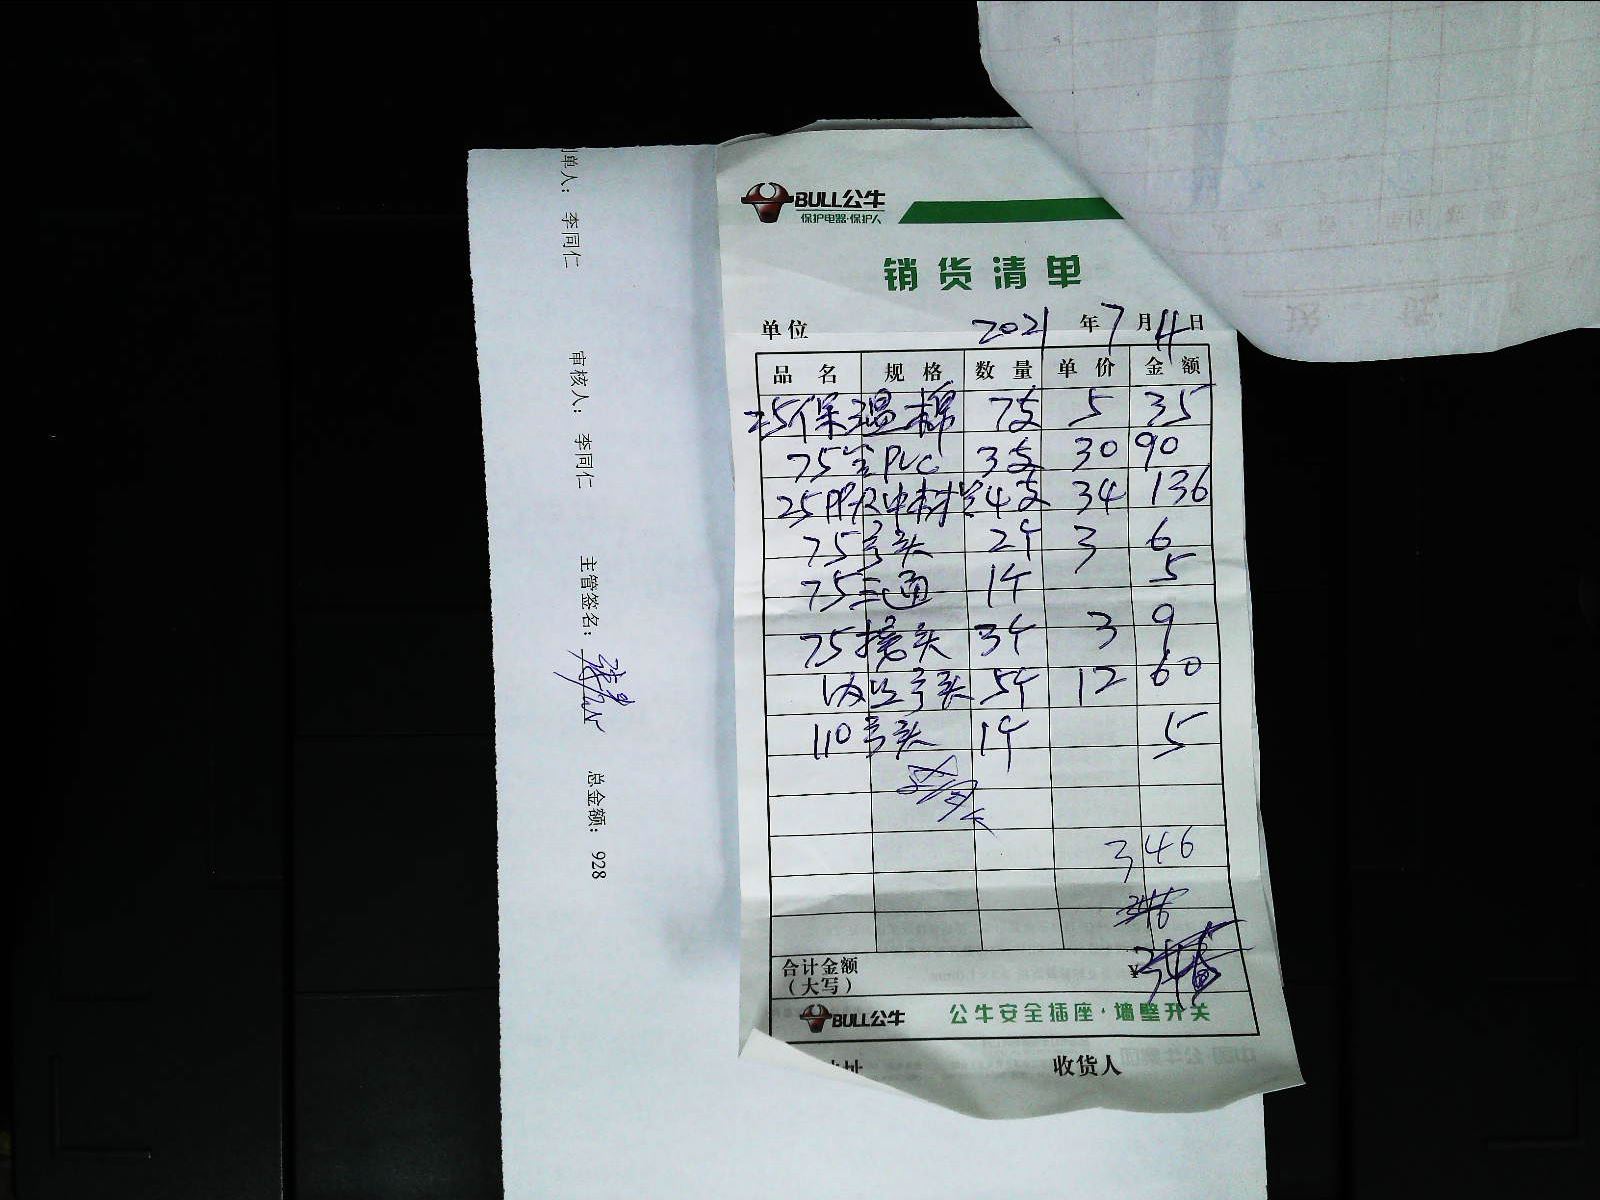 制单人： 李同仁 审核人： 李同仁 主管签名： 总金额： 928
BULL公牛
保护电器·保护人
销货清单
单位 2021 年 7 月 11 日
品名 规格 数量 单价 金额
25保温棉 7支 5 35
75 PVC 3支 30 90
25PPR中材 4支 34 136
75弯头 2个 3 6
75三通 1个 5
75接头 3个 3 9
弯头 5个 12 60
110弯头 1个 5
346
合计金额
（大写） ¥
BULL公牛 公牛安全插座·墙壁开关
收货人